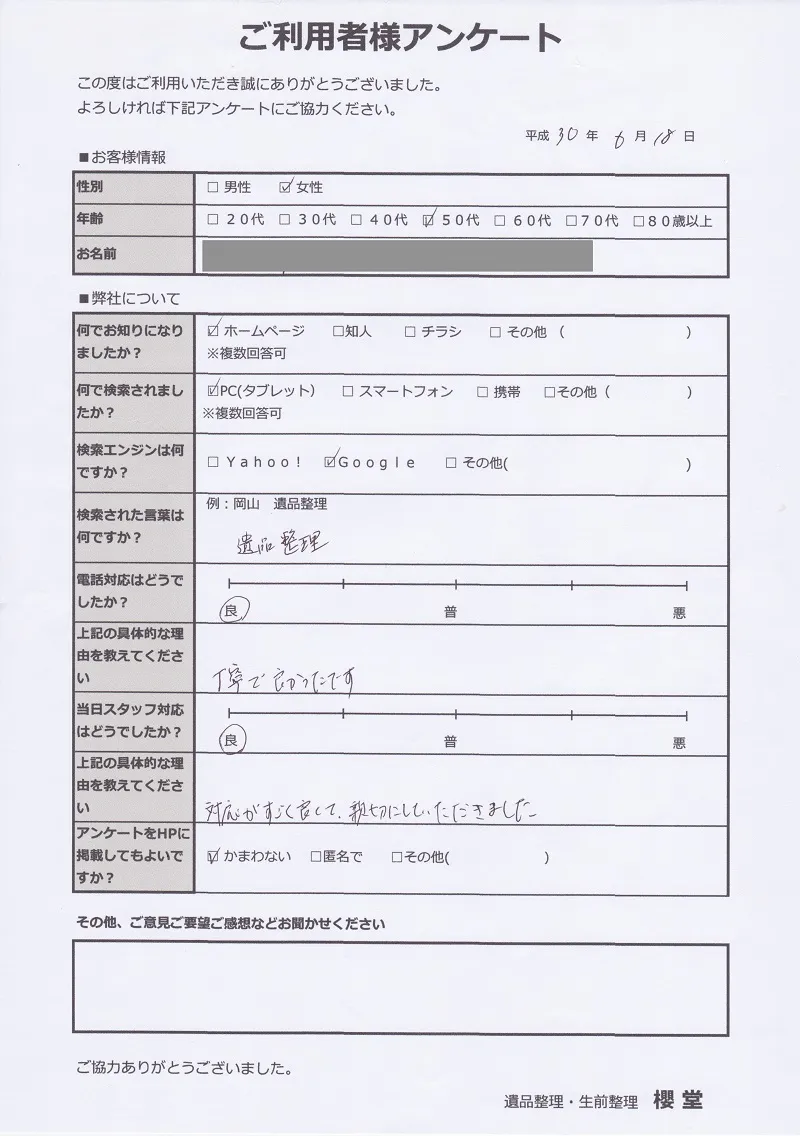 ご利用者様アンケート
この度はご利用いただき誠にありがとうございました。
よろしければ下記アンケートにご協力ください。
平成 30 年 6 月 18 日
■お客様情報
性別 □ 男性 ☑ 女性
年齢 □ 20代 □ 30代 □ 40代 ☑ 50代 □ 60代 □70代 □80歳以上
お名前
■弊社について
何でお知りになり
ましたか？
☑ ホームページ □知人 □ チラシ □ その他 （ ）
※複数回答可
何で検索されまし
たか？
☑PC(タブレット） □ スマートフォン □ 携帯 □その他（ ）
※複数回答可
検索エンジンは何
ですか？
□ Yahoo! ☑Google □ その他( )
検索された言葉は
何ですか？
例：岡山 遺品整理
遺品整理
電話対応はどうで
したか？
良 普 悪
上記の具体的な理
由を教えてくださ
い
丁寧で良かったです
当日スタッフ対応
はどうでしたか？
良 普 悪
上記の具体的な理
由を教えてくださ
い
対応がすごく良くて、親切にしていただきました
アンケートをHPに
掲載してもよいで
すか？
☑ かまわない □匿名で □その他( )
その他、ご意見ご要望ご感想などお聞かせください
ご協力ありがとうございました。
遺品整理・生前整理 櫻堂